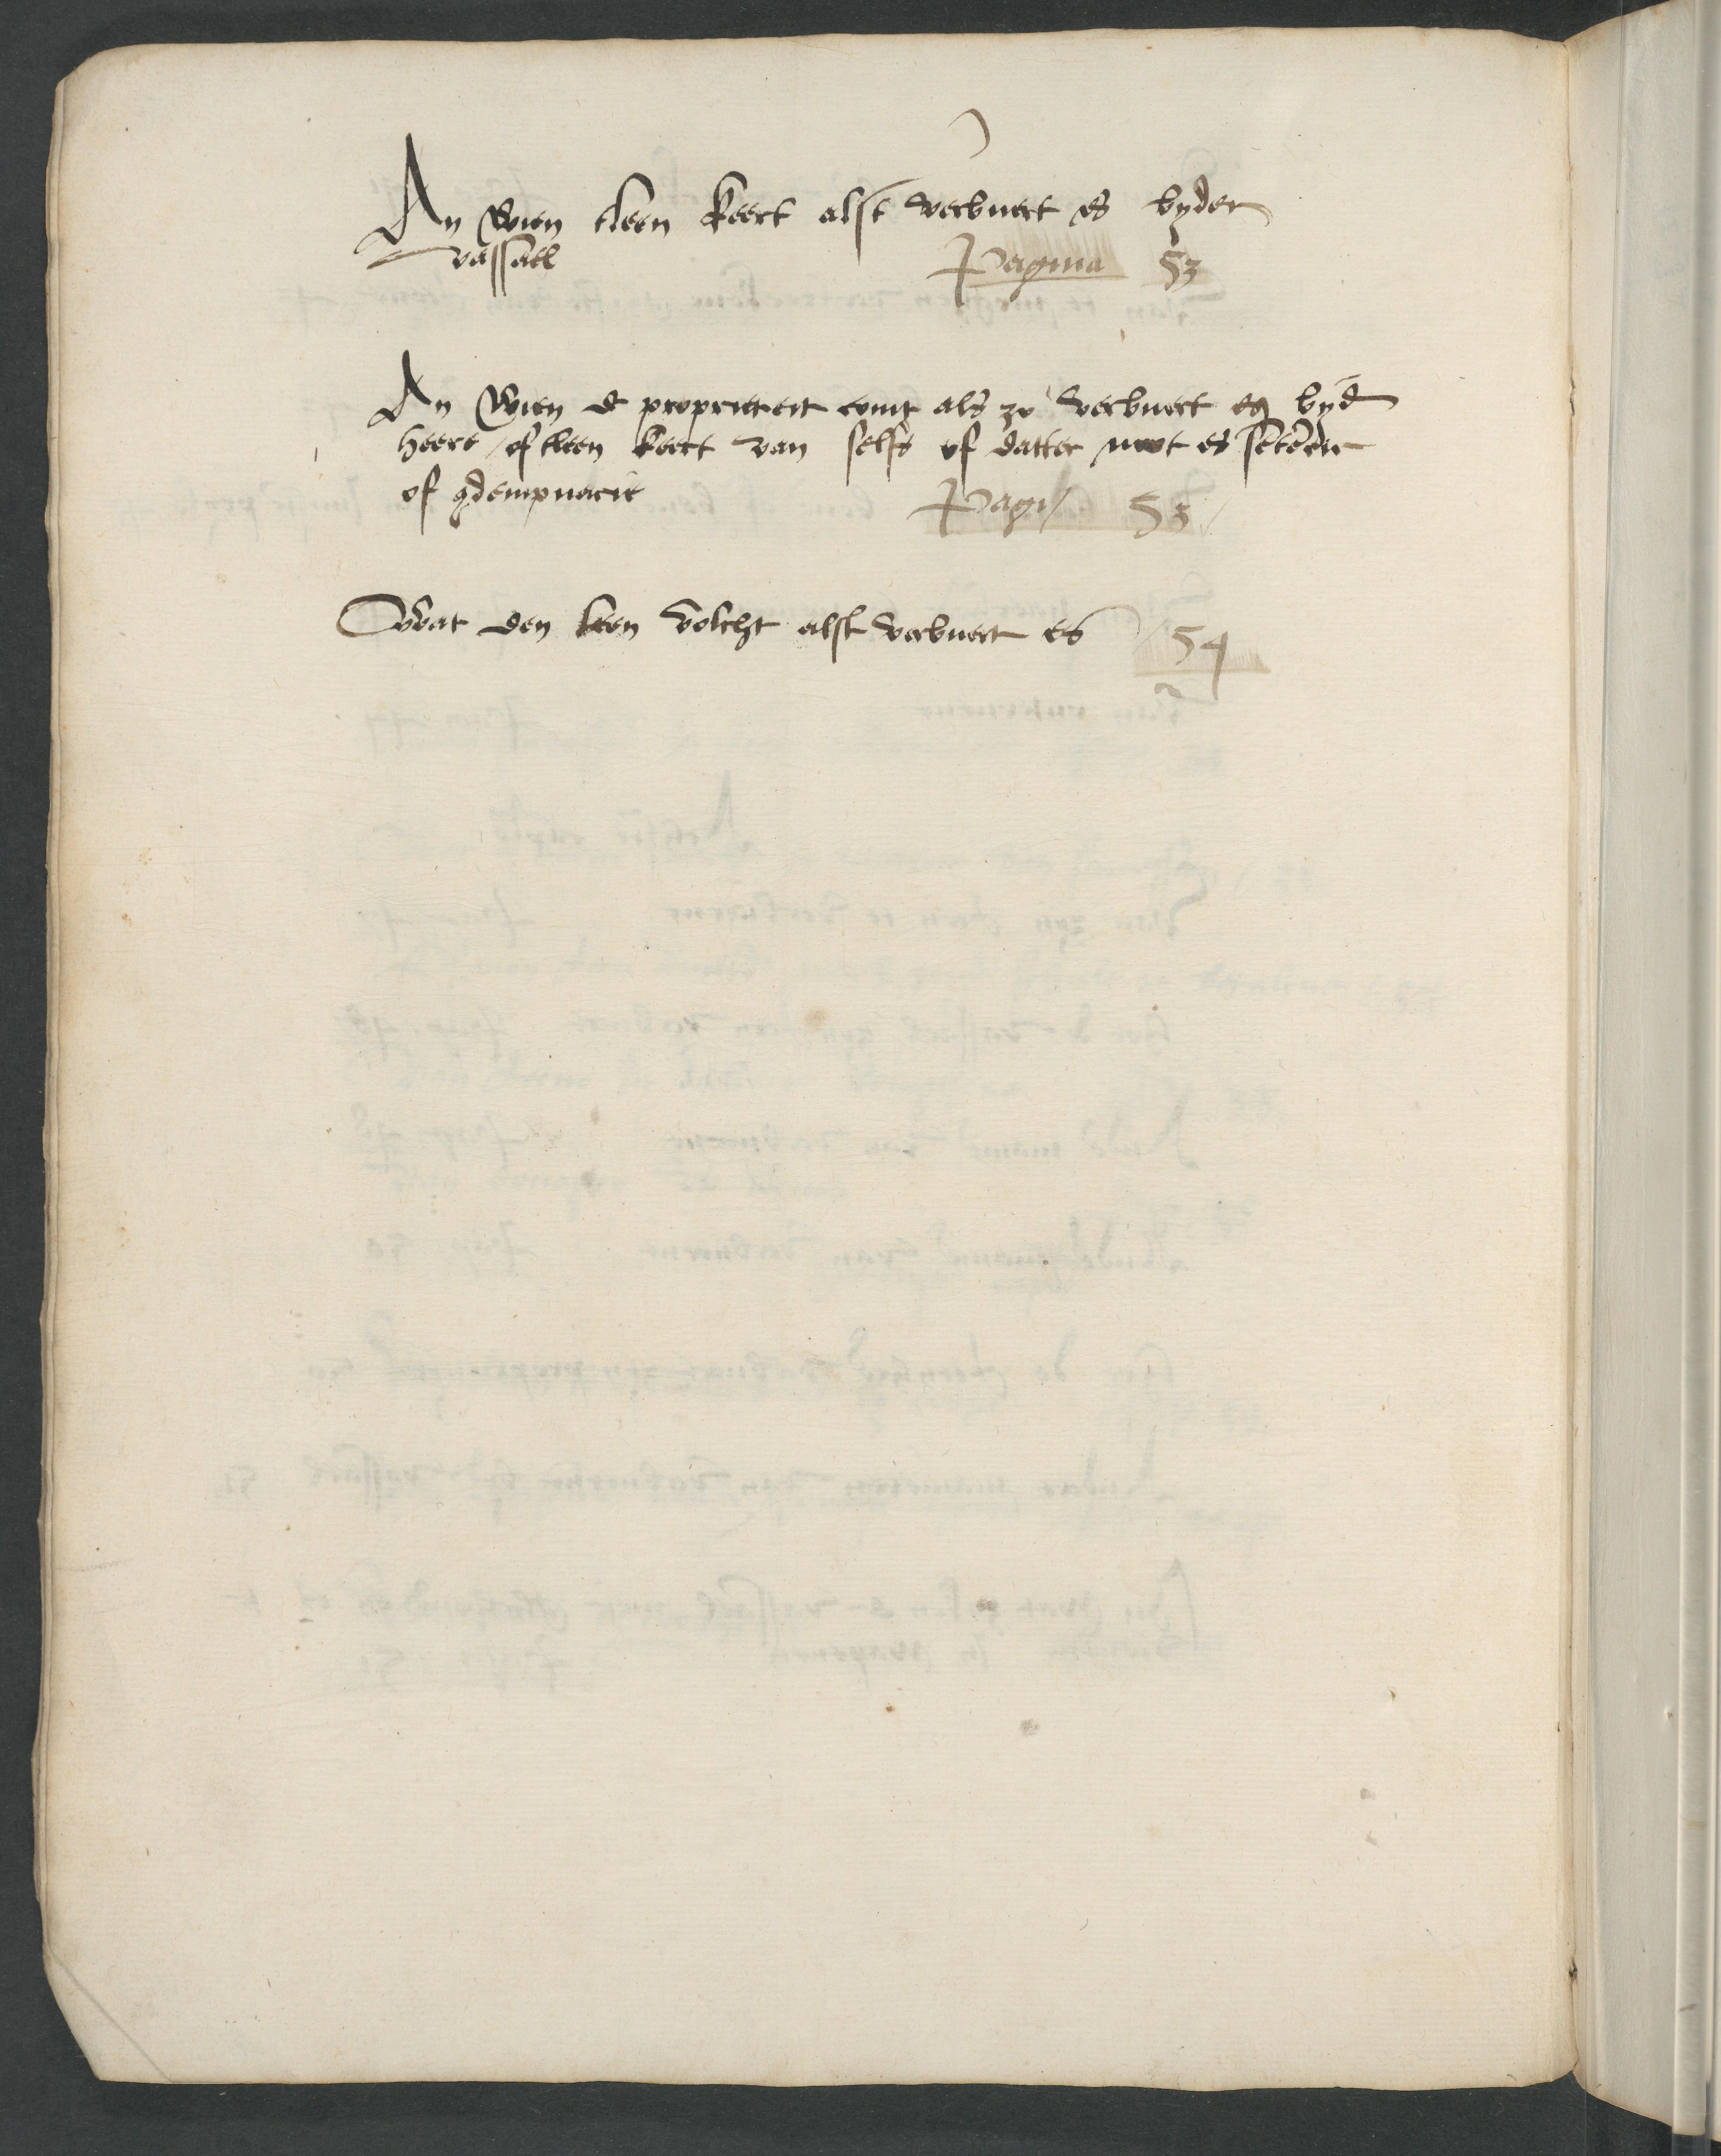 An wien tleen keert alst verbuert es byder
vassael
Pagina 53
An wien de proprieteit comt als zo verbuert es byd
heere / of tleen keert van selfs of datter noot es
of 9dempnacie
Pagi 53
Wat den leen volcht alst verbuert es 54